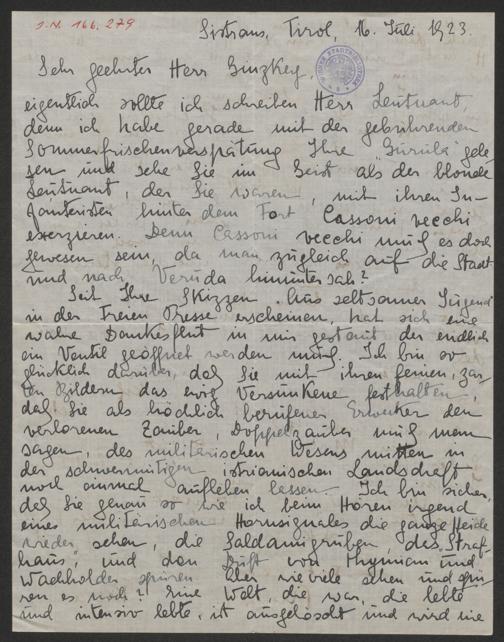 J.N. 166.279
Sistrans, Tirol, 16. Juli 1923.
Sehr geehrter Herr Ginzkey,
eigentlich sollte ich schreiben Herr Leutnant,
denn ich habe gerade mit der gebührenden
Sommerfrischenverspätung Ihre "Girulà" gele
sen und sehe Sie im Geist als der blonde
Leutnant, der Sie waren, mit ihren In-
fanteristen hinter dem Fort Cassoni vecchi
exerzieren. Denn Cassoni vecchi muß es doch
gewesen sein, da man zugleich auf die Stadt
und nach Veruda hinuntersah?
Seit Ihre Skizzen Aus seltsamer Jugend
in der Freien Presse erscheinen, hat sich eine
wahre Dankesflut in mir gestaut der endlich
ein Ventil geöffnet werden muß. Ich bin so
glücklich darüber, daß Sie mit ihren feinen, zar-
ten Bildern das ewig Versunkene festhalten,
daß Sie als höchlich berufener Erwecker den
verlorenen Zauber, Doppelzauber muß man
sagen, des militärischen Wesens mitten in
der schwermütigen istrianischen Landschaft
noch einmal aufleben lassen. Ich bin sicher,
daß Sie genau so wie ich beim Hören irgend
eines militärischen Hornsignales die ganze Heide
wieder sehen, die Saldamegruben, das "Straf-
haus", und den Duft von Thymian und
Wachholder spüren. Aber wieviele sehen und spü-
ren es noch? Eine Welt, die war, die lebte
und intensiv lebte, ist ausgelöscht und wird nie